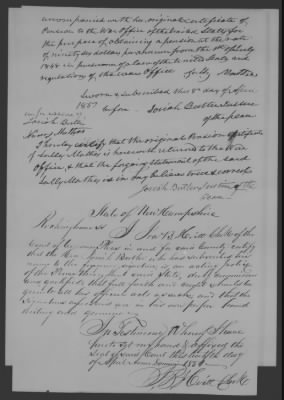 accompanied with her original certificate of
Pension to the War Office of the United States for
the purpose of obtaining a pension at the rate
of ninety six dollars per annum from the
1848 in pursuance of a law of the United States and
regulations of the War Office Sally Mathes
Sworn & subscribed this 8th day of April
1851 before Josiah Butler Justice
of the peace
in presence of
Josiah Butler
Mathes
I hereby certify that the original Pension Certificate
of Sally Mathes is herewith returned to the War
Office, & that the foregoing Statement of the said
Sally Mathes is in my belief true & correct
Josiah Butler Justice of the
Peace
State of New Hampshire
Rockingham Ss I Clerk of the
Court of Common Pleas in and for said County certify
that the Hon. Josiah Butler who has subscribed his
name to the is an acting Justice
of the Peace within and for said State, duly Commissioned
and qualified that full faith and credit should be
given to all his official acts as such, and that the
signature
writing and genuine
In Testimony Whereof I have
hereto set my hand & affixed the
Seal of said Court this day
of April Anno Domini
Clerk